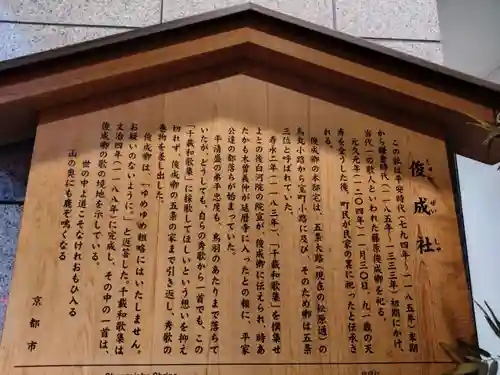 俊成社
しゅんぜいしゃ
この社は平安時代（七九四年～一一八五年）末期
から鎌倉時代（一一八五年～一三三三年）初期にかけ、
当代一の歌人といわれた藤原俊成卿を祀る。
元久元年（一二〇四年）一一月三〇日、九一歳の天
寿を全うした後、町民が民家の裏に祀ったと伝承さ
れる。
俊成卿の本邸宅は、五条大路（現在の松原通）の
烏丸小路から室町小路に及び、そのため卿は五条
三位と呼ばれていた。
寿永二年（一一八三年）、「千載和歌集」を撰集せ
よとの後白河院の院宣が、俊成卿に伝えられ、時あ
たかも木曽義仲が延暦寺に入ったとの報に、平家
公達の都落ちが始まっていた。
平清盛の弟平忠度も、鳥羽のあたりまで落ちて
いたが、どうしても、自らの秀歌から一首でも、この
「千載和歌集」に採歌してほしいという想いを抑え
切れず、俊成卿の五条の家まで引き返し、秀歌の
巻物を差し出した。
俊成卿は、「ゆめゆめ粗略にはいたしません。
お疑いのないように。」と返答した。千載和歌集は
文治四年（一一八八年）に完成し、その中の一首は、
俊成卿の歌の境地を示している。
世の中よ道こそなけれおもひ入る
山の奥にも鹿ぞ鳴くなる
京都市